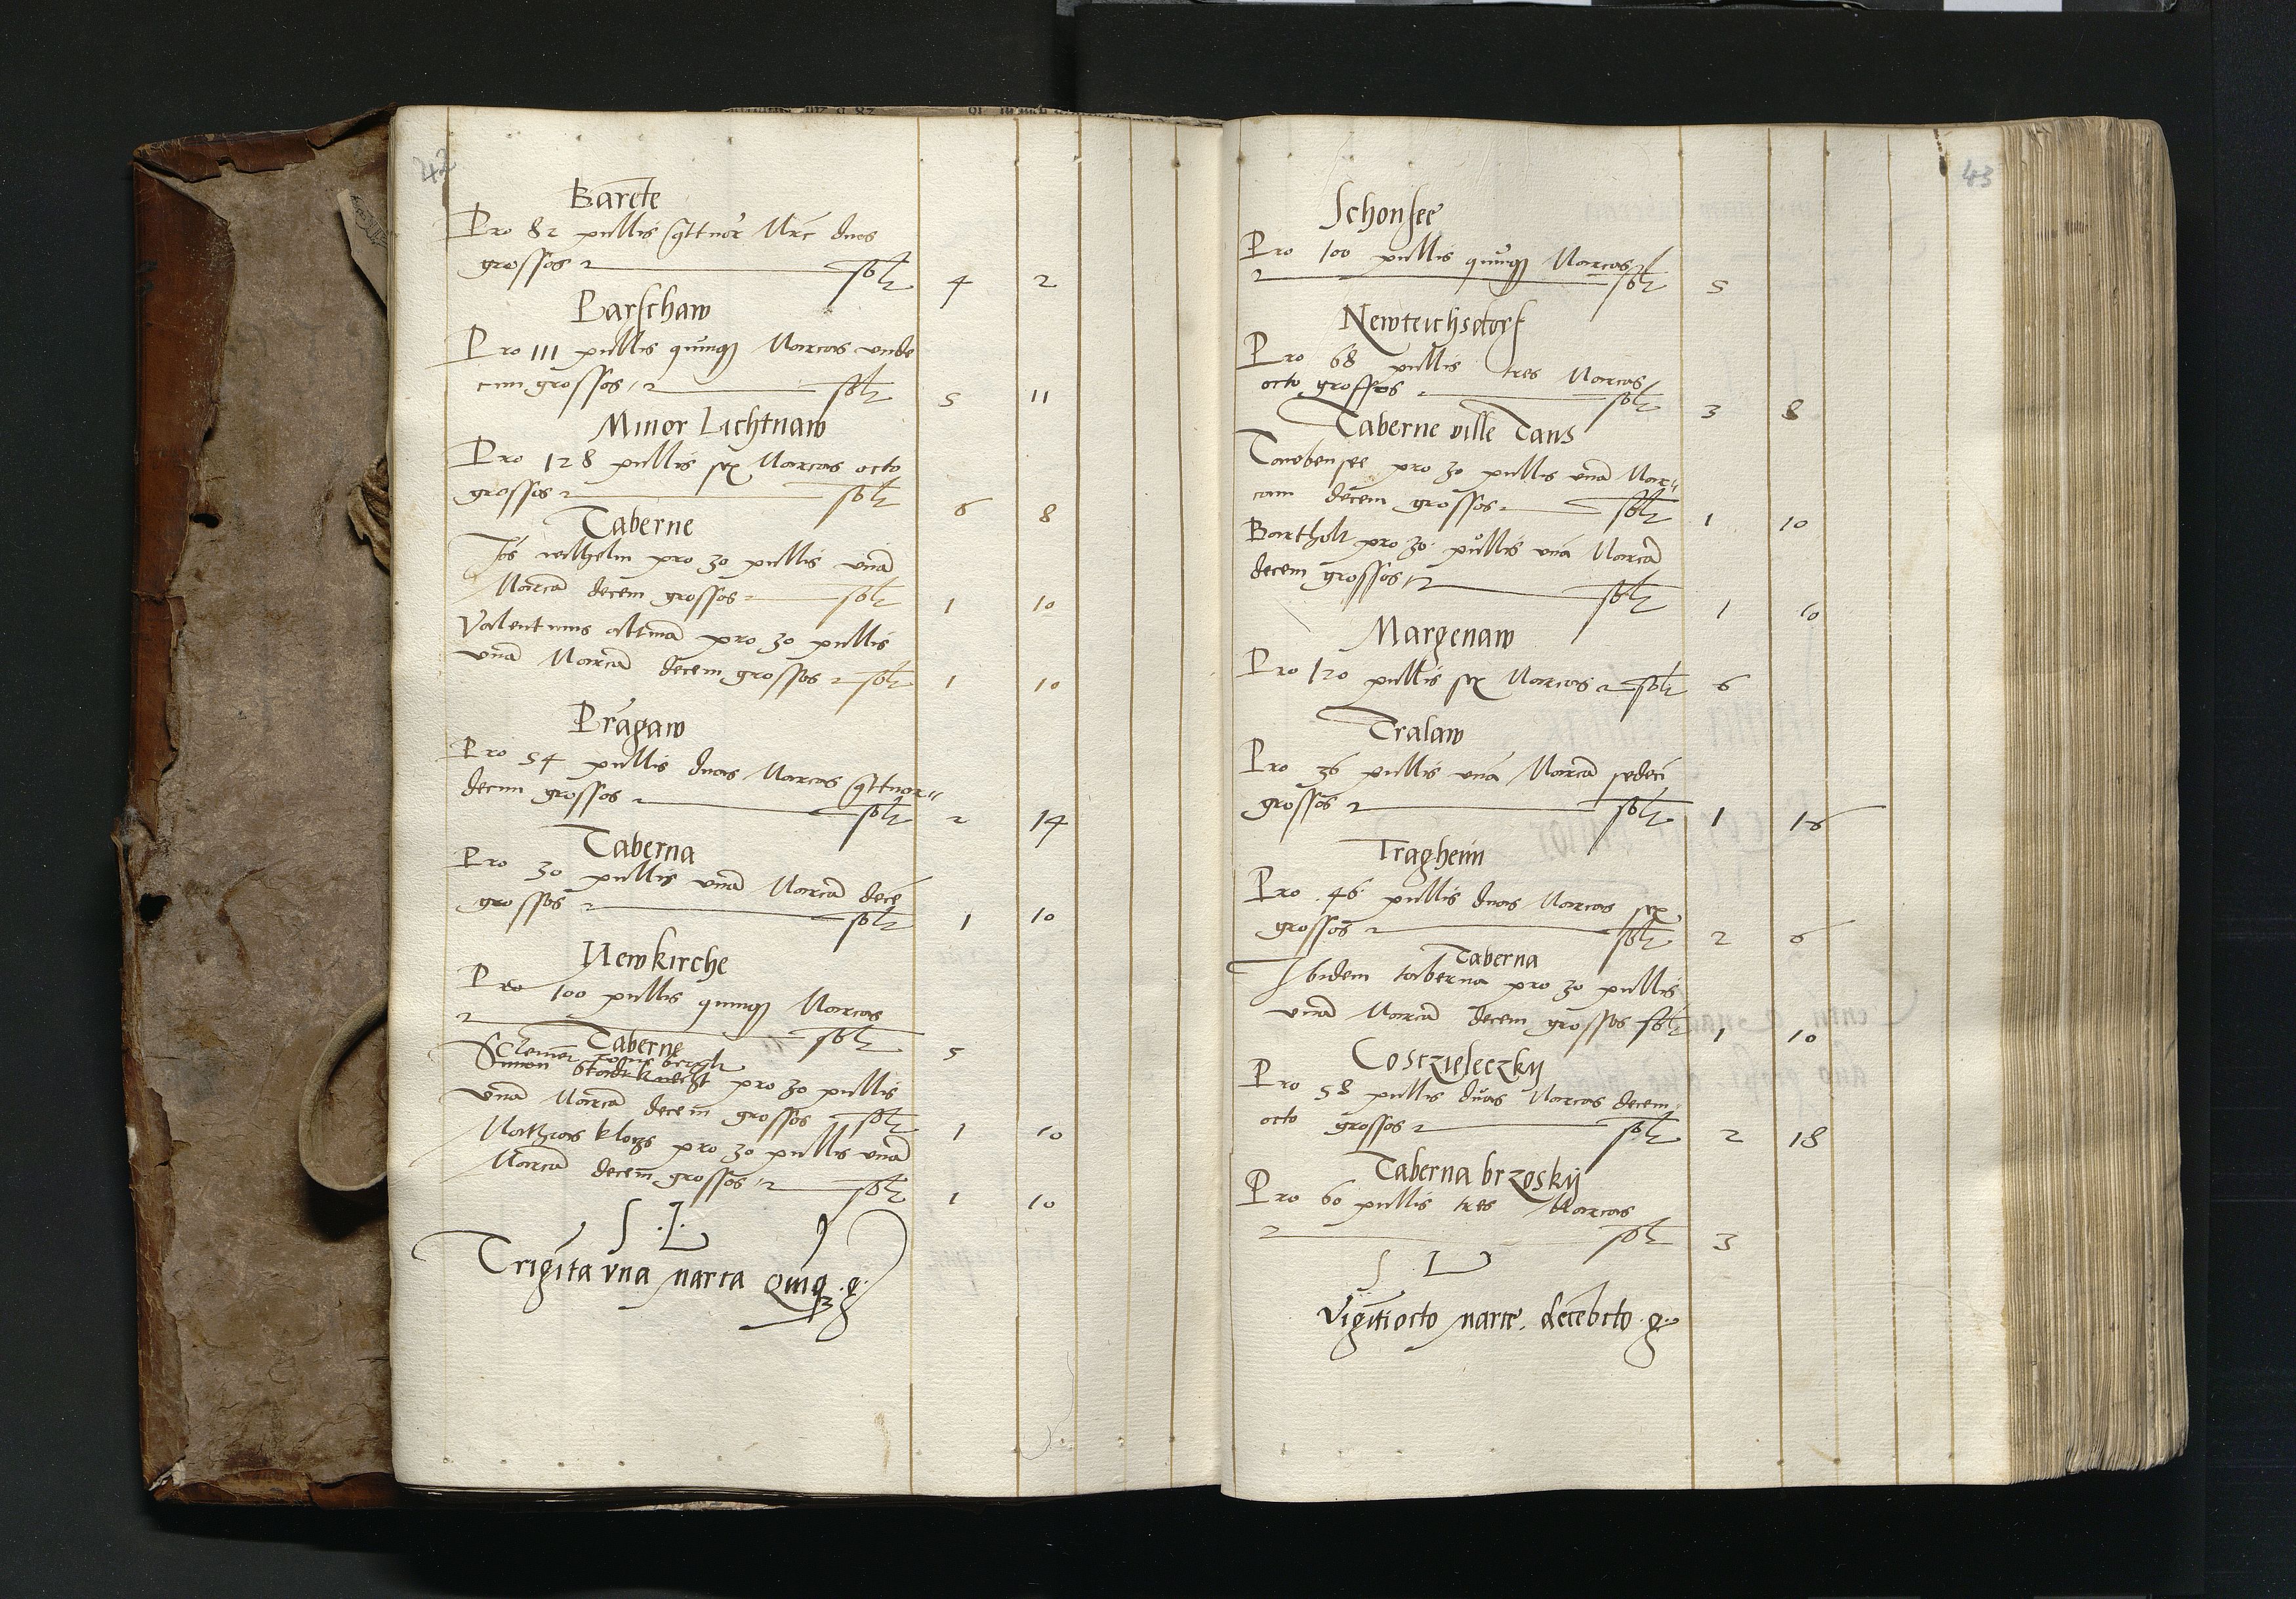 42
Barēte
Pro 82 pullis q̃ttuor Mrc̄ duos
grossos solt 4 2
Parschaw
Pro 111 pullis quinq3 Marcas unde
cim grossos solt 5 11
Minor Lichtnaw
Pro 128 pullis sex Marcas octo
grossos solt 6 8
Taberne
Jos wilhelm pro 30 pullis unā
Marcā decem grossos solt 1 10
Valentinus altmā pro 30 pullis
unā Marcā decem grossos solt 1 10
Pragaw
Pro 54 pullis duas Marcas q̃ttuor
decim grossos solt 2 14
Taberna
Pro 30 pullis unā Marcā decē
grossos solt 1 10
Newkirche
Pro 100 pullis quinq3 Marcas
solt 5
Taberne
Simon Stadtknecht pro 30 pullis
unā Marcā decem grossos solt 1 10
Mathias klozs pro 30 pullis unā
Marcā decem grossos solt 1 10
S. L.
Trigīta vna marca Qinq3 g.
43
Schonsee
Pro 100 pullis quinq3 Marcas
solt 5
Newteichsdorf
Pro 68 pullis tres Marcas
octo grossos solt 3 8
Taberne ville Tans
Tanbensee pro 30 pullis unā Mar
cam decem grossos solt 1 10
Bartholt pro 30 pullis unā Marcā
decem grossos solt 1 10
Margenaw
Pro 120 pullis sex Marcas solt 6
Tralaw
Pro 36 pullis unā Marcā sedecī
grossos solt 1 16
Tragheim
Pro 46 pullis duas Marcas sex
grossos solt 2 6
Taberna
Ibidem taberna pro 30 pullis
unā Marcā decem grossos solt 1 10
Coscźieleczkÿ
Pro 58 pullis duas Marcas decem
octo grossos solt 2 18
Taberna brzoskÿ
Pro 60 pullis tres Marcas
solt 3
S. L.
Vigīti octo marce. decēocto. g.